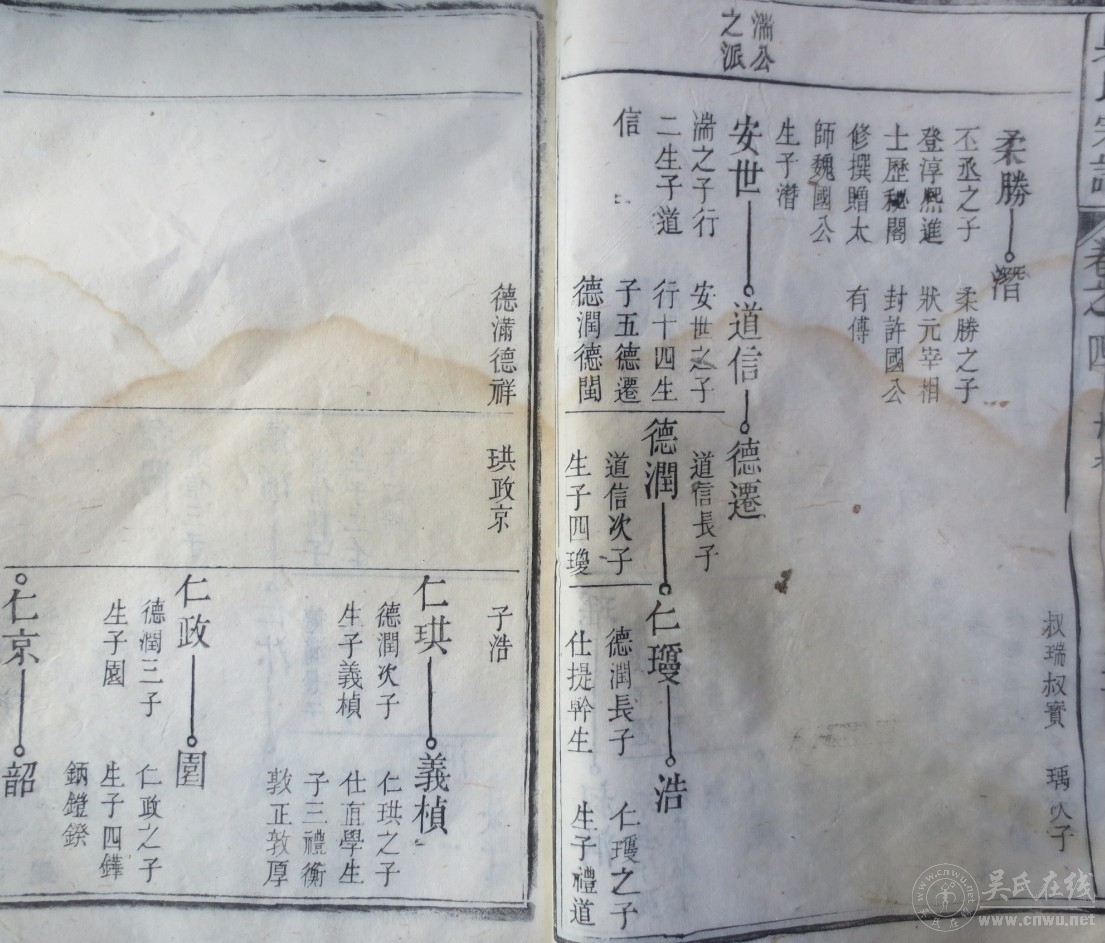 吳氏宗譜
卷之四
叔瑞叔實
子
柔勝
丕丞之子
登淳熙進
士歷秘閣
修撰贈太
師魏國公
生子潛
潛
柔勝之子
狀元宰相
封許國公
有傳
湍公
之派
安世
湍之子行
二生子道
信
道信
安世之子
行十四生
子五德遷
德潤德閏
德滿德祥
德遷
道信長子
德潤
道信次子
生子四瓊
珙政京
仁瓊
德潤長子
仕提幹生
子浩
浩
仁瓊之子
生子禮道
仁珙
德潤次子
生子義楨
義楨
仁珙之子
仕直學生
子三禮衡
敦正敦厚
仁政
德潤三子
生子園
園
仁政之子
生子四鏵
鈵鐙鍨
仁京
韶
吳氏在线
www.cnwu.net